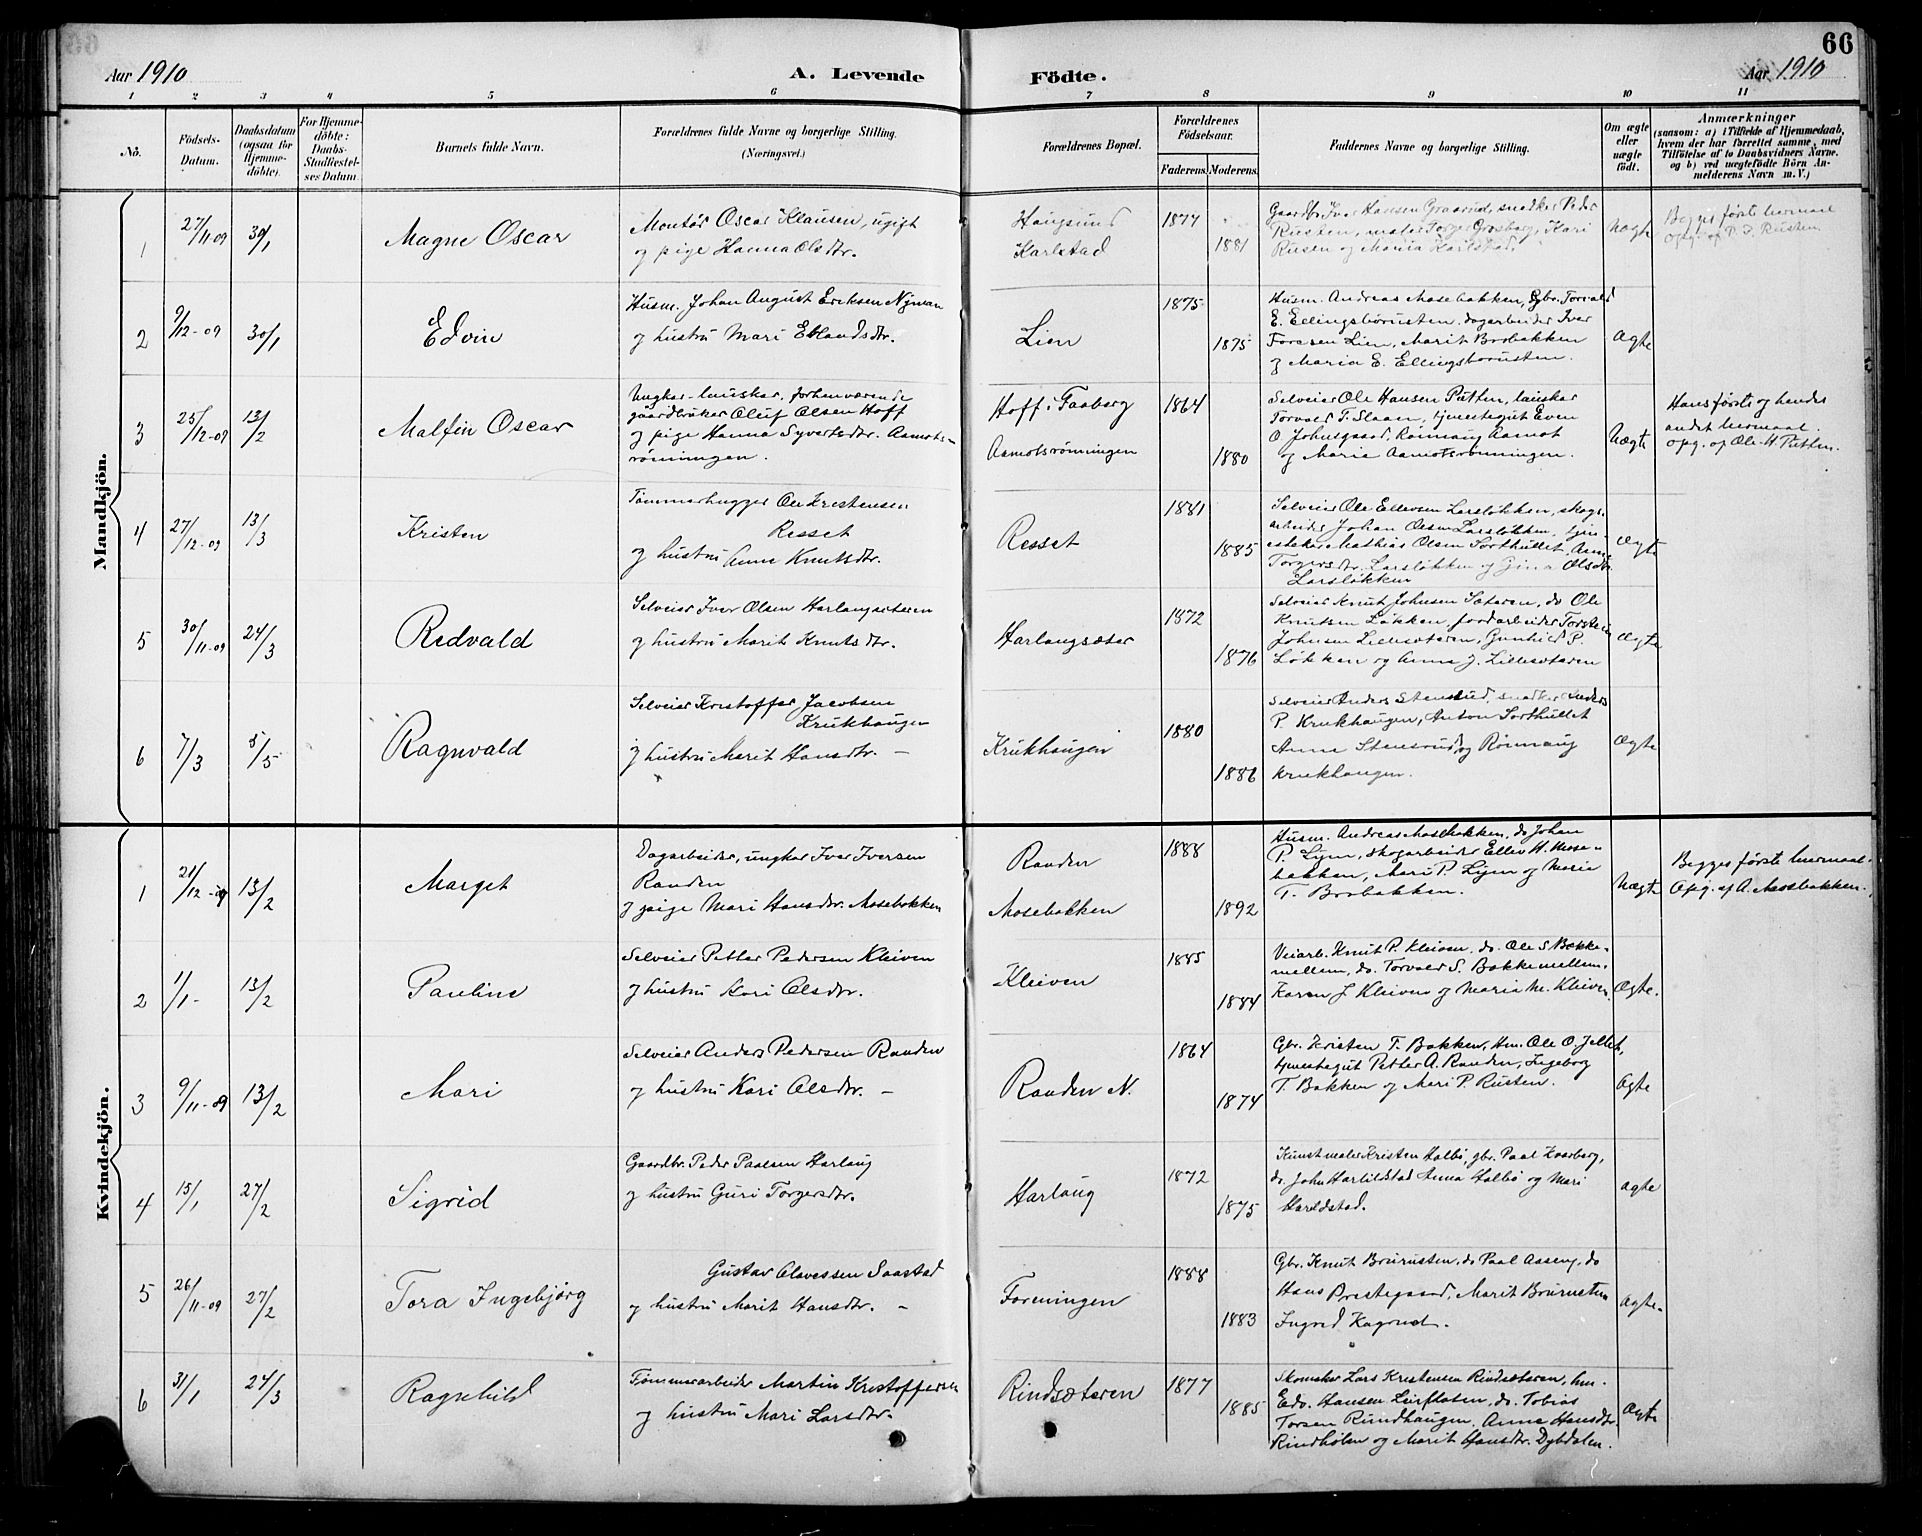 66
Aar 1910
A. Levende
Födte.
Aar 1910
1 2 3 4 5 6 7 8 9 10 11
No.
Födsels-
Datum.
Daabsdatum
(ogsaa for
Hjemme-
döbte).
For Hjemme-
döbte:
Daabs-
Stadfæstel-
ses Datum.
Barnets fulde Navn.
Forældrenes fulde Navne og borgerlige Stilling.
(Næringsvei.)
Forældrenes Bopæl.
Forældrenes
Födselsaar.
Faderens.
Moderens.
Faddernes Navne og borgerlige Stilling.
Om ægte
eller
uægte
födt.
Anmærkninger
(saasom: a) i Tilfælde af Hjemmedaab,
hvem der har forrettet samme, med
Tilföielse af to Daabsvidners Navne.
og b) ved uægtefödte Börn An-
melderens Navn m. V.)
Mandkjön.
1
27/11-09
30/1
Magne Oscar
Montør Oscar Klausen, ugift
og pige Hanna Olsdtr.
Haugsund
Karlstad
1877
1881
Gaardbr. Iver Hansen Graarud, snedker Peder
Rusten, maler Torger Grosberg, Kari
Rusen og Maria Karlstad.
Uægte
Begges første leiermaal
opg. af P. I. Rusten
2
9/12-09
30/1
Edvin
Husm. Johan August Eriksen Nyman
og hustru Mari Erlandsdtr.
Lien
1875
1875
Husm. Andreas Mosebakken, Gbr. Torvald
E. Ellingsbørusten, dagarbeider Iver
Toresen Lien, Marit Brobakken
og Maria E. Ellingsborusten.
Ægte
3
25/12-09
13/2
Malfin Oscar
Ungkar-lauskar, forhenværende
gaardbruker Oluf Olsen Hoff
og pige Hanna Syvertsdtr. Aamots-
rönningen.
Hoff i Faaberg
Aamotsrønningen
1864
1880
Selveier Ole Hansen Putten, lauskar
Torvald T. Slaan, tjenestegut Even
O. Johnsgaard, Rønnaug Aamot
og Marie Aamotsrønningen.
Uægte
Hans første og hendes
andet leiermaal.
opg. af Ole H. Putten.
4
27/12-09
13/3
Kristen
Tømmerhugger Ole Kristensen
Resset
og hustru Anne Knutsdtr.
Resset
1881
1885
Selveier Ole Ellevsen Larsløkken, skogs-
arbeider Johan Olsen Larsløkken, tjen-
estekar Mathias Olsen Sorthullet, Anne
Torgersdtr. Larsløkken og Olsdtr.
Larsløkken
Ægte
5
30/11-09
24/3
Redvald
Selveier Iver Olsen Harlangsæteren
og hustru Marit Knutsdtr.
Harlangsæter
1872
1876
Selveier Knut Johnsen Sæteren, do Ole
Knutsen Løkken, jordarbeider Torstein
Johnsen Lillesæteren, Gunhild P.
Løkken og Anne J. Lillesæteren
Ægte
6
7/3
5/5
Ragnvald
Selveier Kristoffer Jacobsen
Krukhaugen
og hustru Marit Hansdtr. –
Krukhaugen
1880
1886
Selveier Anders Stensrud, snedker Anders
P. Krukhaugen, Anton Sorthullet
Anne Stensrud og Rønnaug
Krukhaugen.
Ægte
Kvindekjön.
1
21/12-09
13/2
Marget
Dagarbeider, ungkar Iver Iversen
Randen
og pige Mari Hansdtr. Mosebakken
Randen
Mosebakken
1888
1892
Husm. Andreas Mosebakken, do Johan
P. Lien, skogarbeider Ellev H. Mose-
bakken, Mari P. Lien og Marie
T. Brobakken.
Uægte
Begges første leiermaal.
Opg. af A. Mosebakken.
2
1/1-
13/2
Pauline
Selveier Petter Pedersen Kleiven
og hustru Kari Olsdtr.
Kleiven
1885
1884
Veiarb. Knut P. Kleiven, do. Ole S. Bakke-
mellem, do. Torvald S. Bakkemellem,
Karen J. Kleiven og Maria M. Kleiven
Ægte.
3
9/11-09
13/2
Mari
Selveier Anders Pedersen Randen
og hustru Kari Olsdtr. –
Randen N.
1864
1874
Gbr. Kristen T. Bakken, Hm. Ole O. Jellet,
tjenestegut Petter A. Randen, Ingeborg
T. Bakken og Mari P. Rusten.
Ægte
4
15/1
27/2
Sigrid
Gaardbr. Peder Paalsen Harlaug
og hustru Guri Torgersdtr.
Harlaug
1872
1875
Kunstmaler Kristen Holbø, gbr. Paal Kvarberg,
do. John Harildstad Anna Holbø og Mari
Harildstad.
Ægte
5
26/11-09
27/2
Tora Ingebjørg
Gustav Olavessen Saastad
og hustru Marit Hansdtr. –
Foreningen
1888
1883
Gbr. Knut Brurusten, do Paal Aaseng, do
Hans Prestegaard, Marit Brurusten
Ingrid Kagrud.
Ægte.
6
31/1
24/3
Ragnhild
Tømmerarbeider Martin Kristoffersen
og hustru Mari Larsdtr.
Rindsæteren
1877
1885
Skomaker Lars Kristensen Rindsæteren, hm.
Edv. Hansen Leirflaten, do. Tobias
Torsen Rundhaugen, Anne Hansdtr.
Rindhølen og Marit Hansdtr. Dybdalen.
Ægte